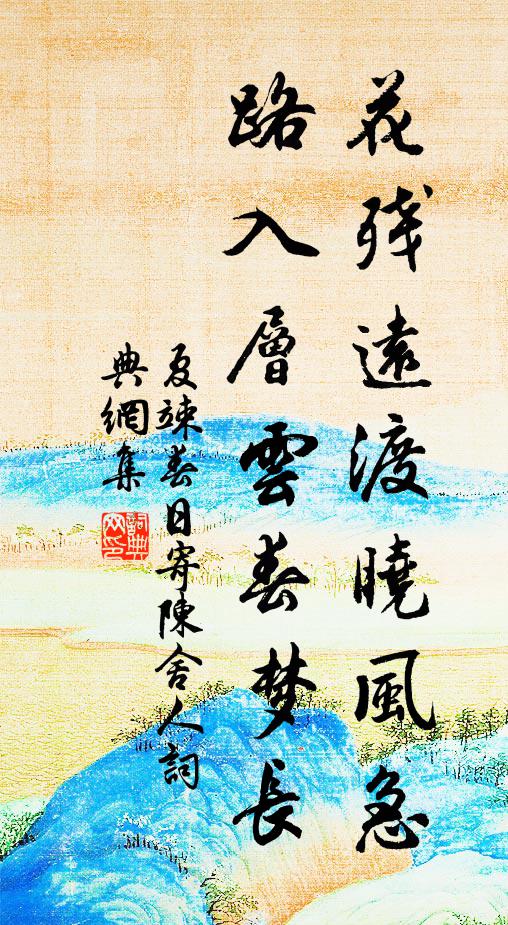 花残遠渡曉風急
路入層雲春梦長
夏竦春日寄陳舍人詞
典網集
詞典
网印